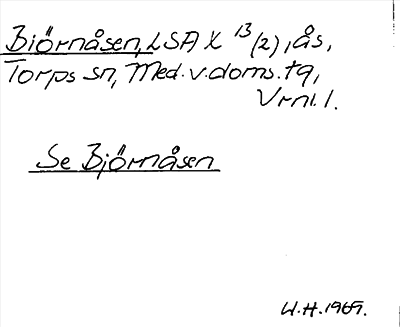 Biörnåsen, LSA X 13/(2), ås,
Torps sn, Med. v. doms. tg,
Vrnl. l.
Se Björnåsen
W.H. 1969.